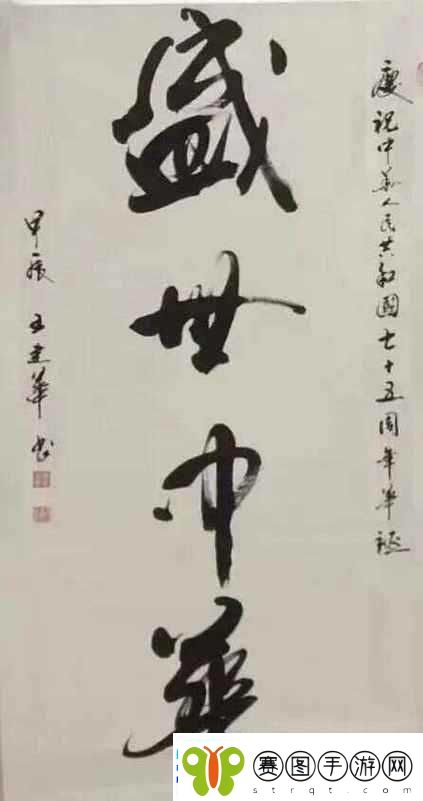 慶祝中華人民共和國七十五周年華誕
盛世中華
甲辰 王建華書
赛图手游网
strqt.com